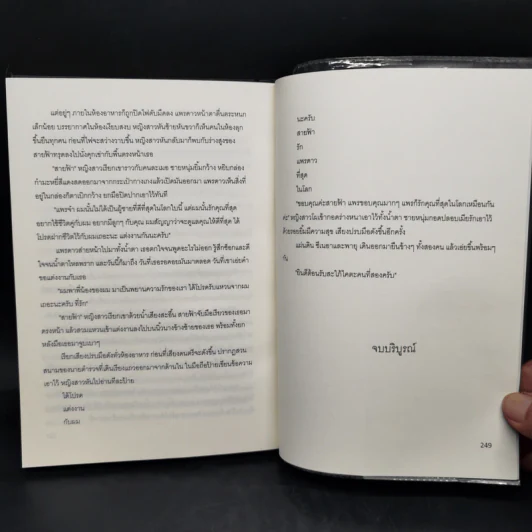 แต่อยู่ๆ ภายในห้องอาหารก็ถูกปิดไฟดับมืดลง แพรดาวหน้าตาตื่นตระหนก
เล็กน้อย บรรยากาศในห้องเงียบสงบ หญิงสาวหันซ้ายหันขวาก็เห็นคนในห้องลุก
ขึ้นยืนทุกคน ก่อนที่ไฟจะสว่างวาบขึ้น หญิงสาวหันกลับมาก็พบกับร่างสูงของ
สายฟ้าทรุดลงไปนั่งคุกเข่ากับพื้นตรงหน้าเธอ
"สายฟ้า" หญิงสาวเรียกเขาราวกับคนละเมอ ชายหนุ่มยิ้มกว้าง หยิบกล่อง
กำมะหยี่สีแดงสดออกมาจากกระเป๋ากางเกงแล้วเปิดมันออกมา แพรดาวเห็นสิ่งที่
อยู่ในกล่องก็ตาเบิกกว้าง ยกมือปิดปากเอาไว้ทันที
"แพรจ๋า ผมนั้นไม่ได้เป็นผู้ชายที่ดีที่สุดในโลกใบนี้ แต่ผมนั้นรักคุณที่สุด
อยากใช้ชีวิตคู่กับคุณ อยากมีลูกๆ กับคุณ ผมสัญญาว่าจะดูแลคุณให้ดีที่สุด ได้
โปรดฝากชีวิตไว้กับผมเถอะนะ แต่งงานกันนะครับ"
แพรดาวส่ายหน้าไปมาทั้งน้ำตา เธอตกใจจนพูดอะไรไม่ออก รู้สึกช็อกและดี
ใจจนน้ำตาไหลพราก และวันนี้ก็มาถึง วันที่เธอรอคอยมันมาตลอด วันที่เขาเอ่ยคำ
ขอแต่งงานกับเธอ
"ผมพาพี่น้องของผม มาเป็นพยานความรักของเรา ได้โปรดรับแหวนจากผม
เถอะนะครับ ที่รัก"
"สายฟ้า" หญิงสาวเรียกเขาด้วยน้ำเสียงสะอื้น สายฟ้าจับมือเรียวของเธอมา
ตรงหน้า แล้วสวมแหวนเข้าแต่งงานลงไปบนนิ้วนางข้างซ้ายของเธอ พร้อมทั้งยก
หลังมือเธอมาจูบเบาๆ
เรียกเสียงปรบมือดังทั่วห้องอาหาร ก่อนที่เสียงดนตรีจะดังขึ้น ปรากฏสวน
สนามของนายตำรวจที่เดินเรียงแถวออกมาจากด้านใน ในมือถือป้ายเขียนข้อความ
เอาไว้ หญิงสาวหันไปอ่านทีละป้าย
ได้โปรด
แต่งงาน
กับผม
นะครับ
สายฟ้า
รัก
แพรดาว
ที่สุด
ในโลก
"ขอบคุณค่ะสายฟ้า แพรขอบคุณมากๆ แพรก็รักคุณที่สุดในโลกเหมือนกัน
ค่ะ" หญิงสาวโผเข้ากอดร่างหนาเอาไว้ทั้งน้ำตา ชายหนุ่มกอดปลอบเมียรักเอาไว้
ด้วยรอยยิ้มมีความสุข เสียงปรบมือดังขึ้นอีกครั้ง
แผ่นดิน ชีเนอาและพายุ เดินออกมายืนข้างๆ ทั้งสองคน แล้วเอ่ยขึ้นพร้อมๆ
กัน
"ยินดีต้อนรับสะใภ้โคตะคนที่สองครับ"
จบบริบูรณ์
249